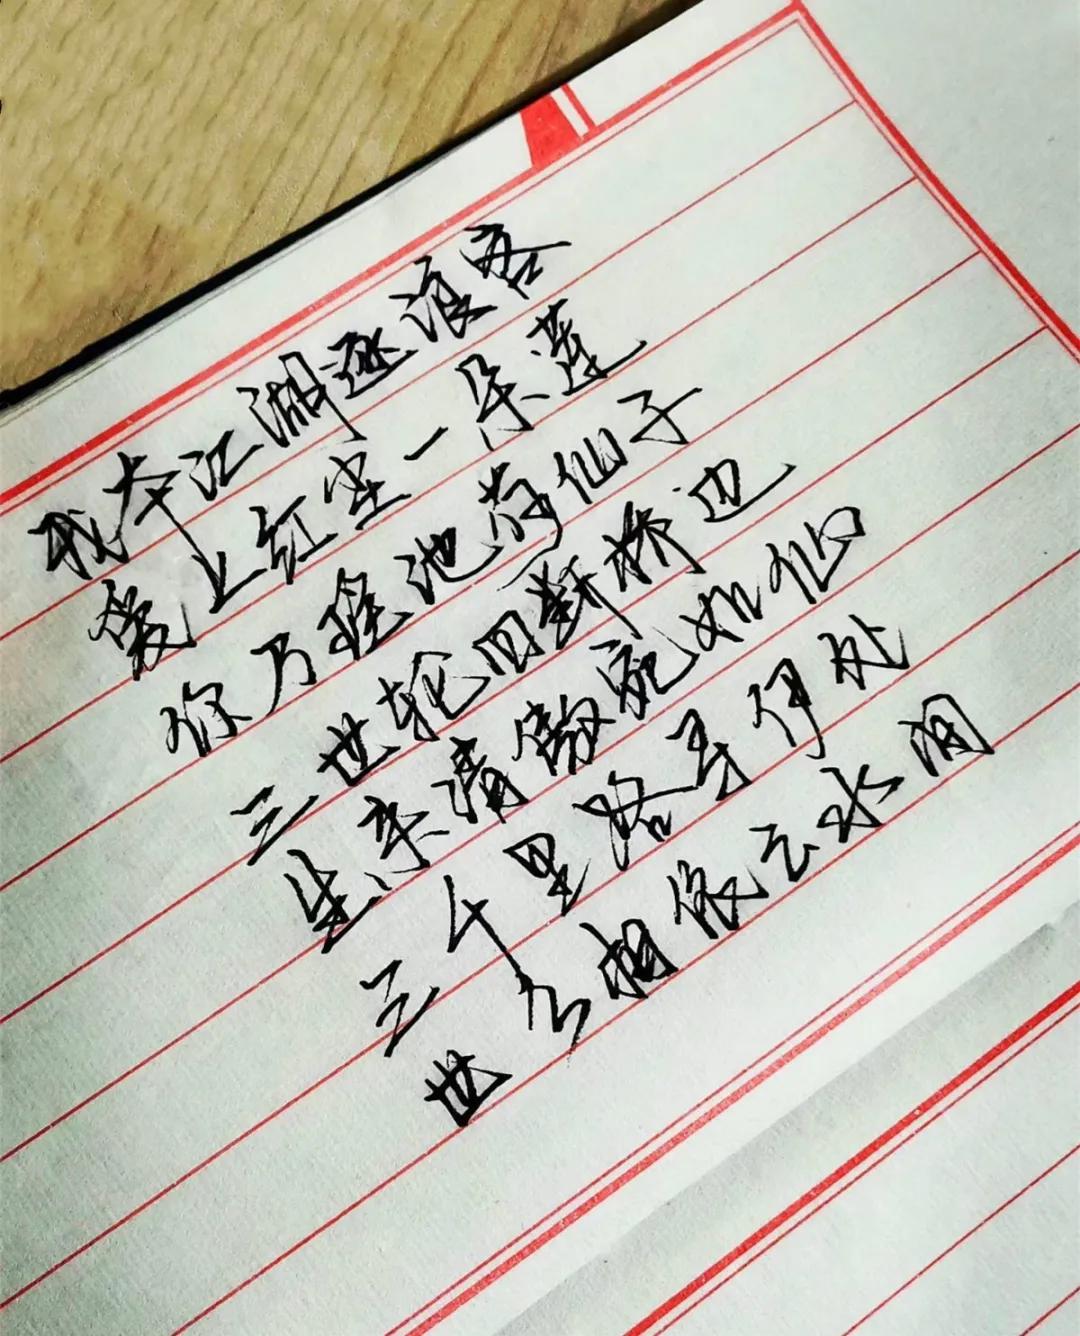 我本江湖逐浪客
爱上红尘一朵莲
你乃瑶池荷仙子
三世轮回断桥边
生来清傲宛如仙
三千里路寻伊处
世久相依云水间